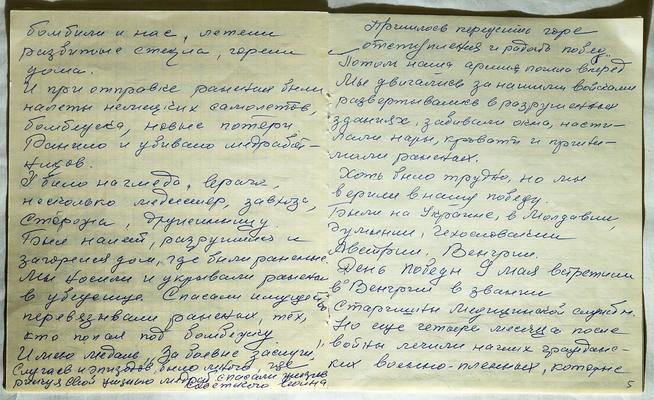 бомбили и нас, летели
развитые стекла, горели
дома.
И при отправке раненых были
налеты немецких самолетов,
бомбежка, новые потери.
Ранило и убивало медработ-
ников.
Убило начмеда, врача,
несколько медсестер, завхоза,
стверозна, дружинницу.
Был налет, разрушился и
загорелся дом, где были раненые.
Мы носили и укрывали раненых
в убежище. Спасали имущество,
перевязывали раненых, тех,
кто попал под бомбежку.
Имею медаль „За боевые заслуги“,
Случаев и эпизодов было много, где
рискуя своей жизнью медики спасали жизнь
советского воина
Пришлось пережить горе
отступления и радость побед.
Потом наша армия пошла вперед
Мы двигались за нашими войсками
развертывались в разрушенных
зданиях, забивали окна, насти-
лали нары, кровати и прини-
мали раненых.
Хоть было трудно, но мы
верили в нашу победу.
Были на Украине, в Молдавии,
Румынии, Чехословакии
Австрии, Венгрии.
День победы 9 мая встретили
в Венгрии в звании
Старшины Медицинской службы.
Но еще четыре месяца после
войны лечили наших граждан-
ских военно-пленных, которые
5